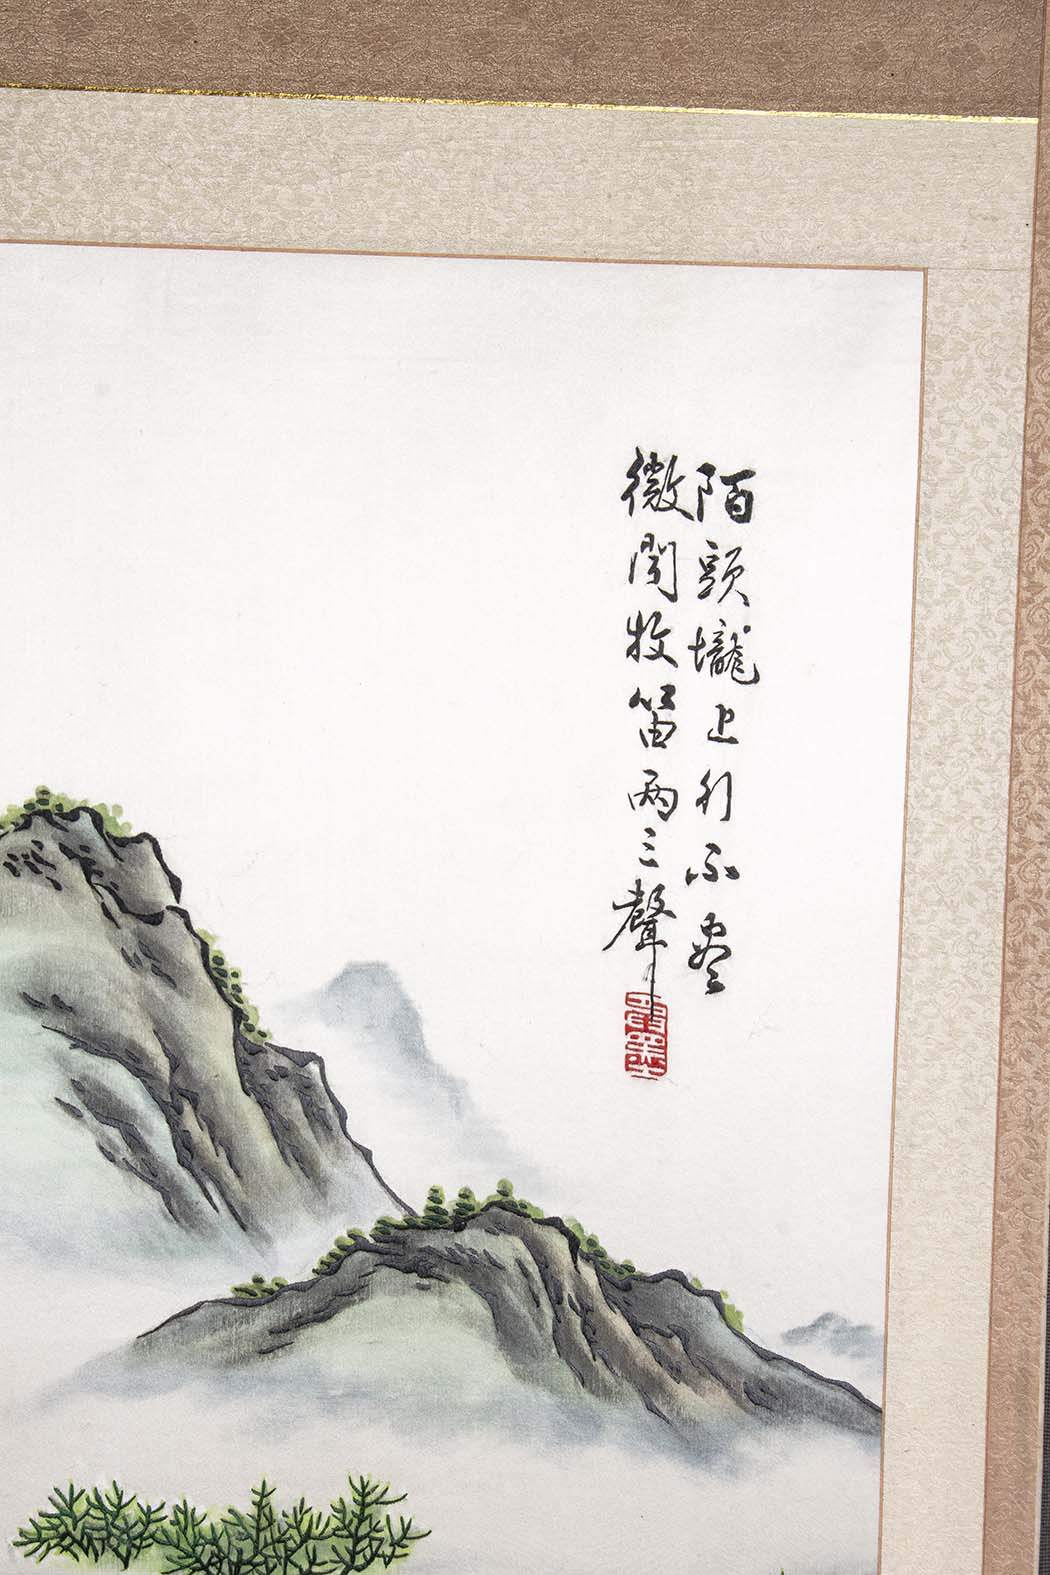 陌頭壠上行不盡
微聞牧笛兩三聲